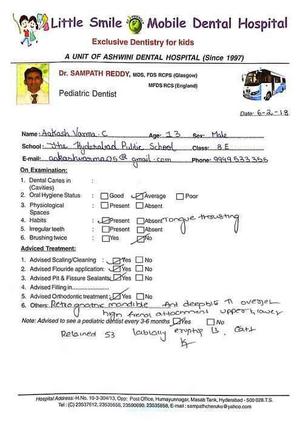 Little Smile Mobile Dental Hospital
Exclusive Dentistry for kids
A UNIT OF ASHWINI DENTAL HOSPITAL (Since 1997)
Dr. SAMPATH REDDY, MDS, FDS RCPS (Glasgow)
MFDS RCS (England)
Pediatric Dentist
Date: 6-2-18
Name: Aakash Varma. C Age: 13 Sex: Male
School: The Hyderabad Public School Class: 8E
E-mail: aakashvarma05@gmail.com Phone: 9999533355
On Examination:
1. Dental Caries in :
(Cavities)
2. Oral Hygiene Status : Good Average Poor
3. Physiological : Present Absent
Spaces
4. Habits : Present Absent Tongue thrusting
5. Irregular teeth : Present Absent
6. Brushing twice : Yes No
Adviced Treatment:
1. Advised Scaling/Cleaning : Yes No
2. Advised Flouride application: Yes No
3. Advised Pit & Fissure Sealants: Yes No
4. Advised Filling in
5. Advised Orthodontic treatment: Yes No
6. Others: Retrognathic mandible Ant deepbite
high frenal attachment upper lower
Note: Advised to see a pediatric dentist every 3-6 months Yes No
Retained 53 labially
Hospital Address: H.No. 10-3-304/13, Opp: Post Office, Humayunnagar, Masab Tank, Hyderabad - 500 028.T.S.
Tel : (C) 23537612, 23535658, 23590090, 23535858, E-mail : sampathcheruku@yahoo.com